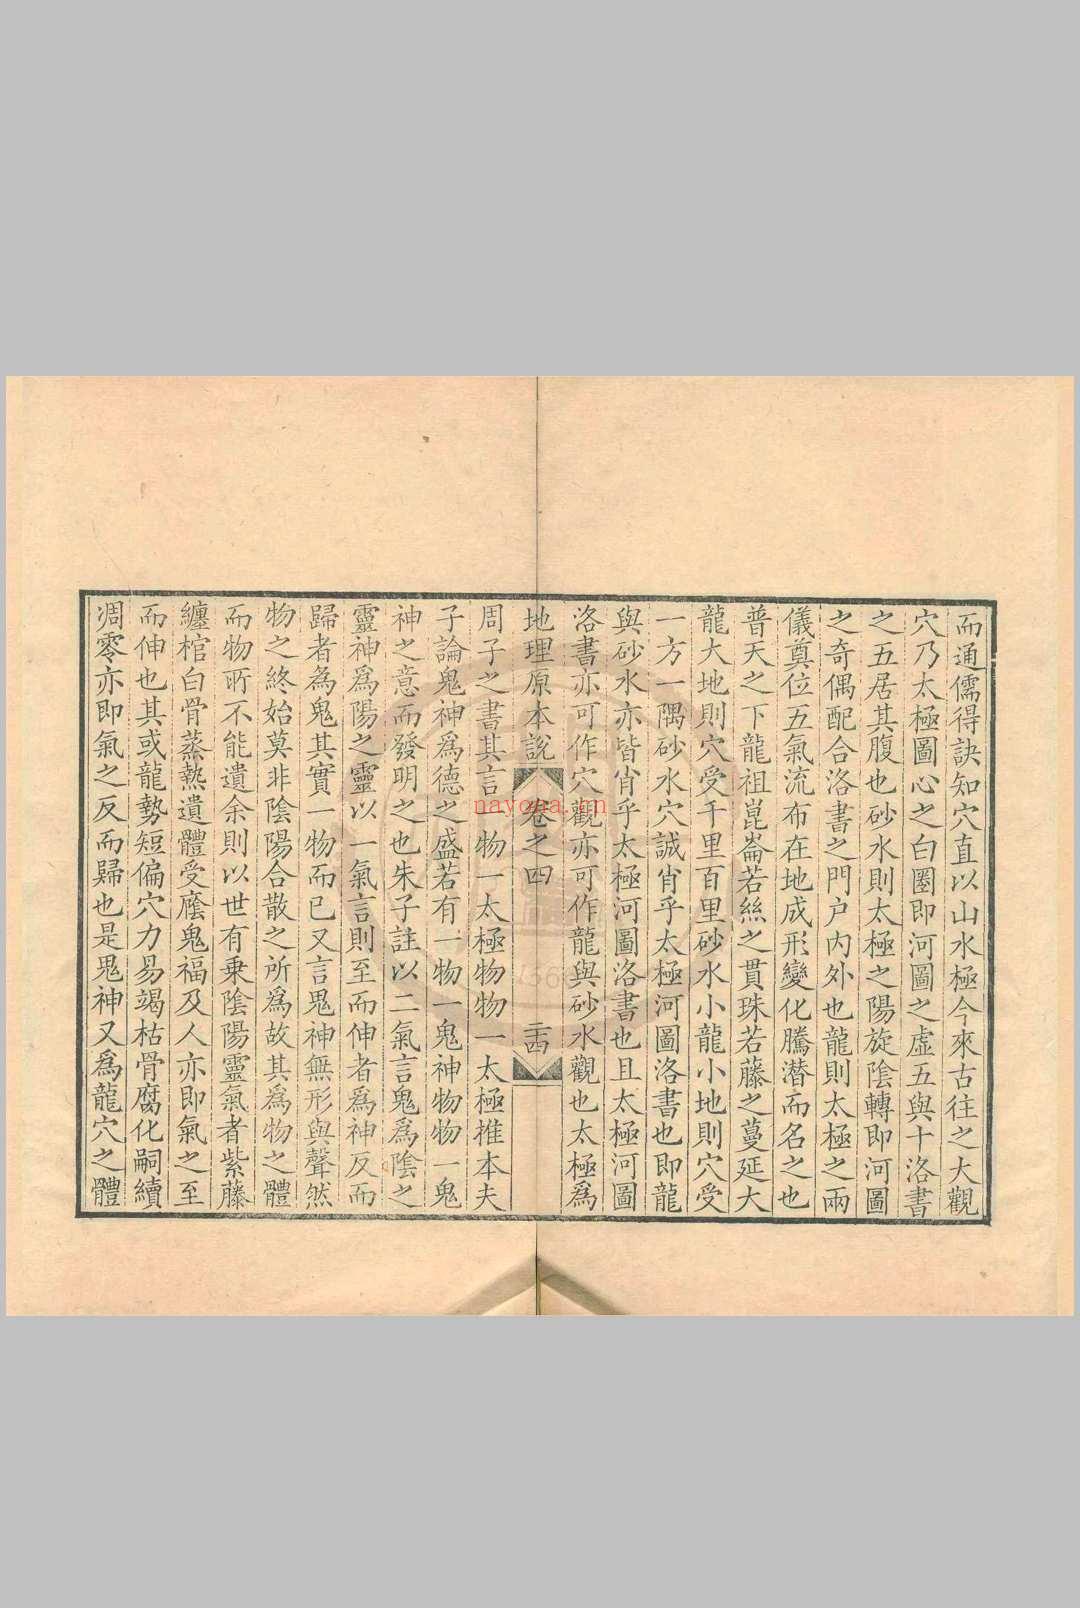 而通儒得訣知穴直以山水極今來古往之大觀
穴乃太極圖心之白圈即河圖之虛五與十洛書
之五居其腹也砂水則太極之陽旋陰轉即河圖
之奇偶配合洛書之門戶內外也龍則太極之兩
儀奠位五氣流布在地成形變化騰潛而名之也
普天之下龍祖崑崙若絲之貫珠若藤之蔓延大
龍大地則穴受千里百里砂水小龍小地則穴受
一方一隅砂水穴誠肖乎太極河圖洛書也即龍
與砂水亦皆肖乎太極河圖洛書也且太極河圖
洛書亦可作穴觀亦可作龍與砂水觀也太極為
地理原本說 卷之四 二四
周子之書其言一物一太極物物一太極推本夫
子論鬼神爲德之盛若有一物一鬼神物物一鬼
神之意而發明之也朱子註以二氣言鬼爲陰之
靈神爲陽之靈以一氣言則至而伸者爲神反而
歸者為鬼其實一物而已又言鬼神無形與聲然
物之終始莫非陰陽合散之所爲故其爲物之體
而物所不能遺余則以世有乗陰陽靈氣者紫藤
纏棺白骨蒸熱遺體受廕鬼福及人亦即氣之至
而伸也其或龍勢短偏穴力易竭枯骨腐化嗣續
凋零亦即氣之反而歸也是鬼神又爲龍穴之體
nayona.cn